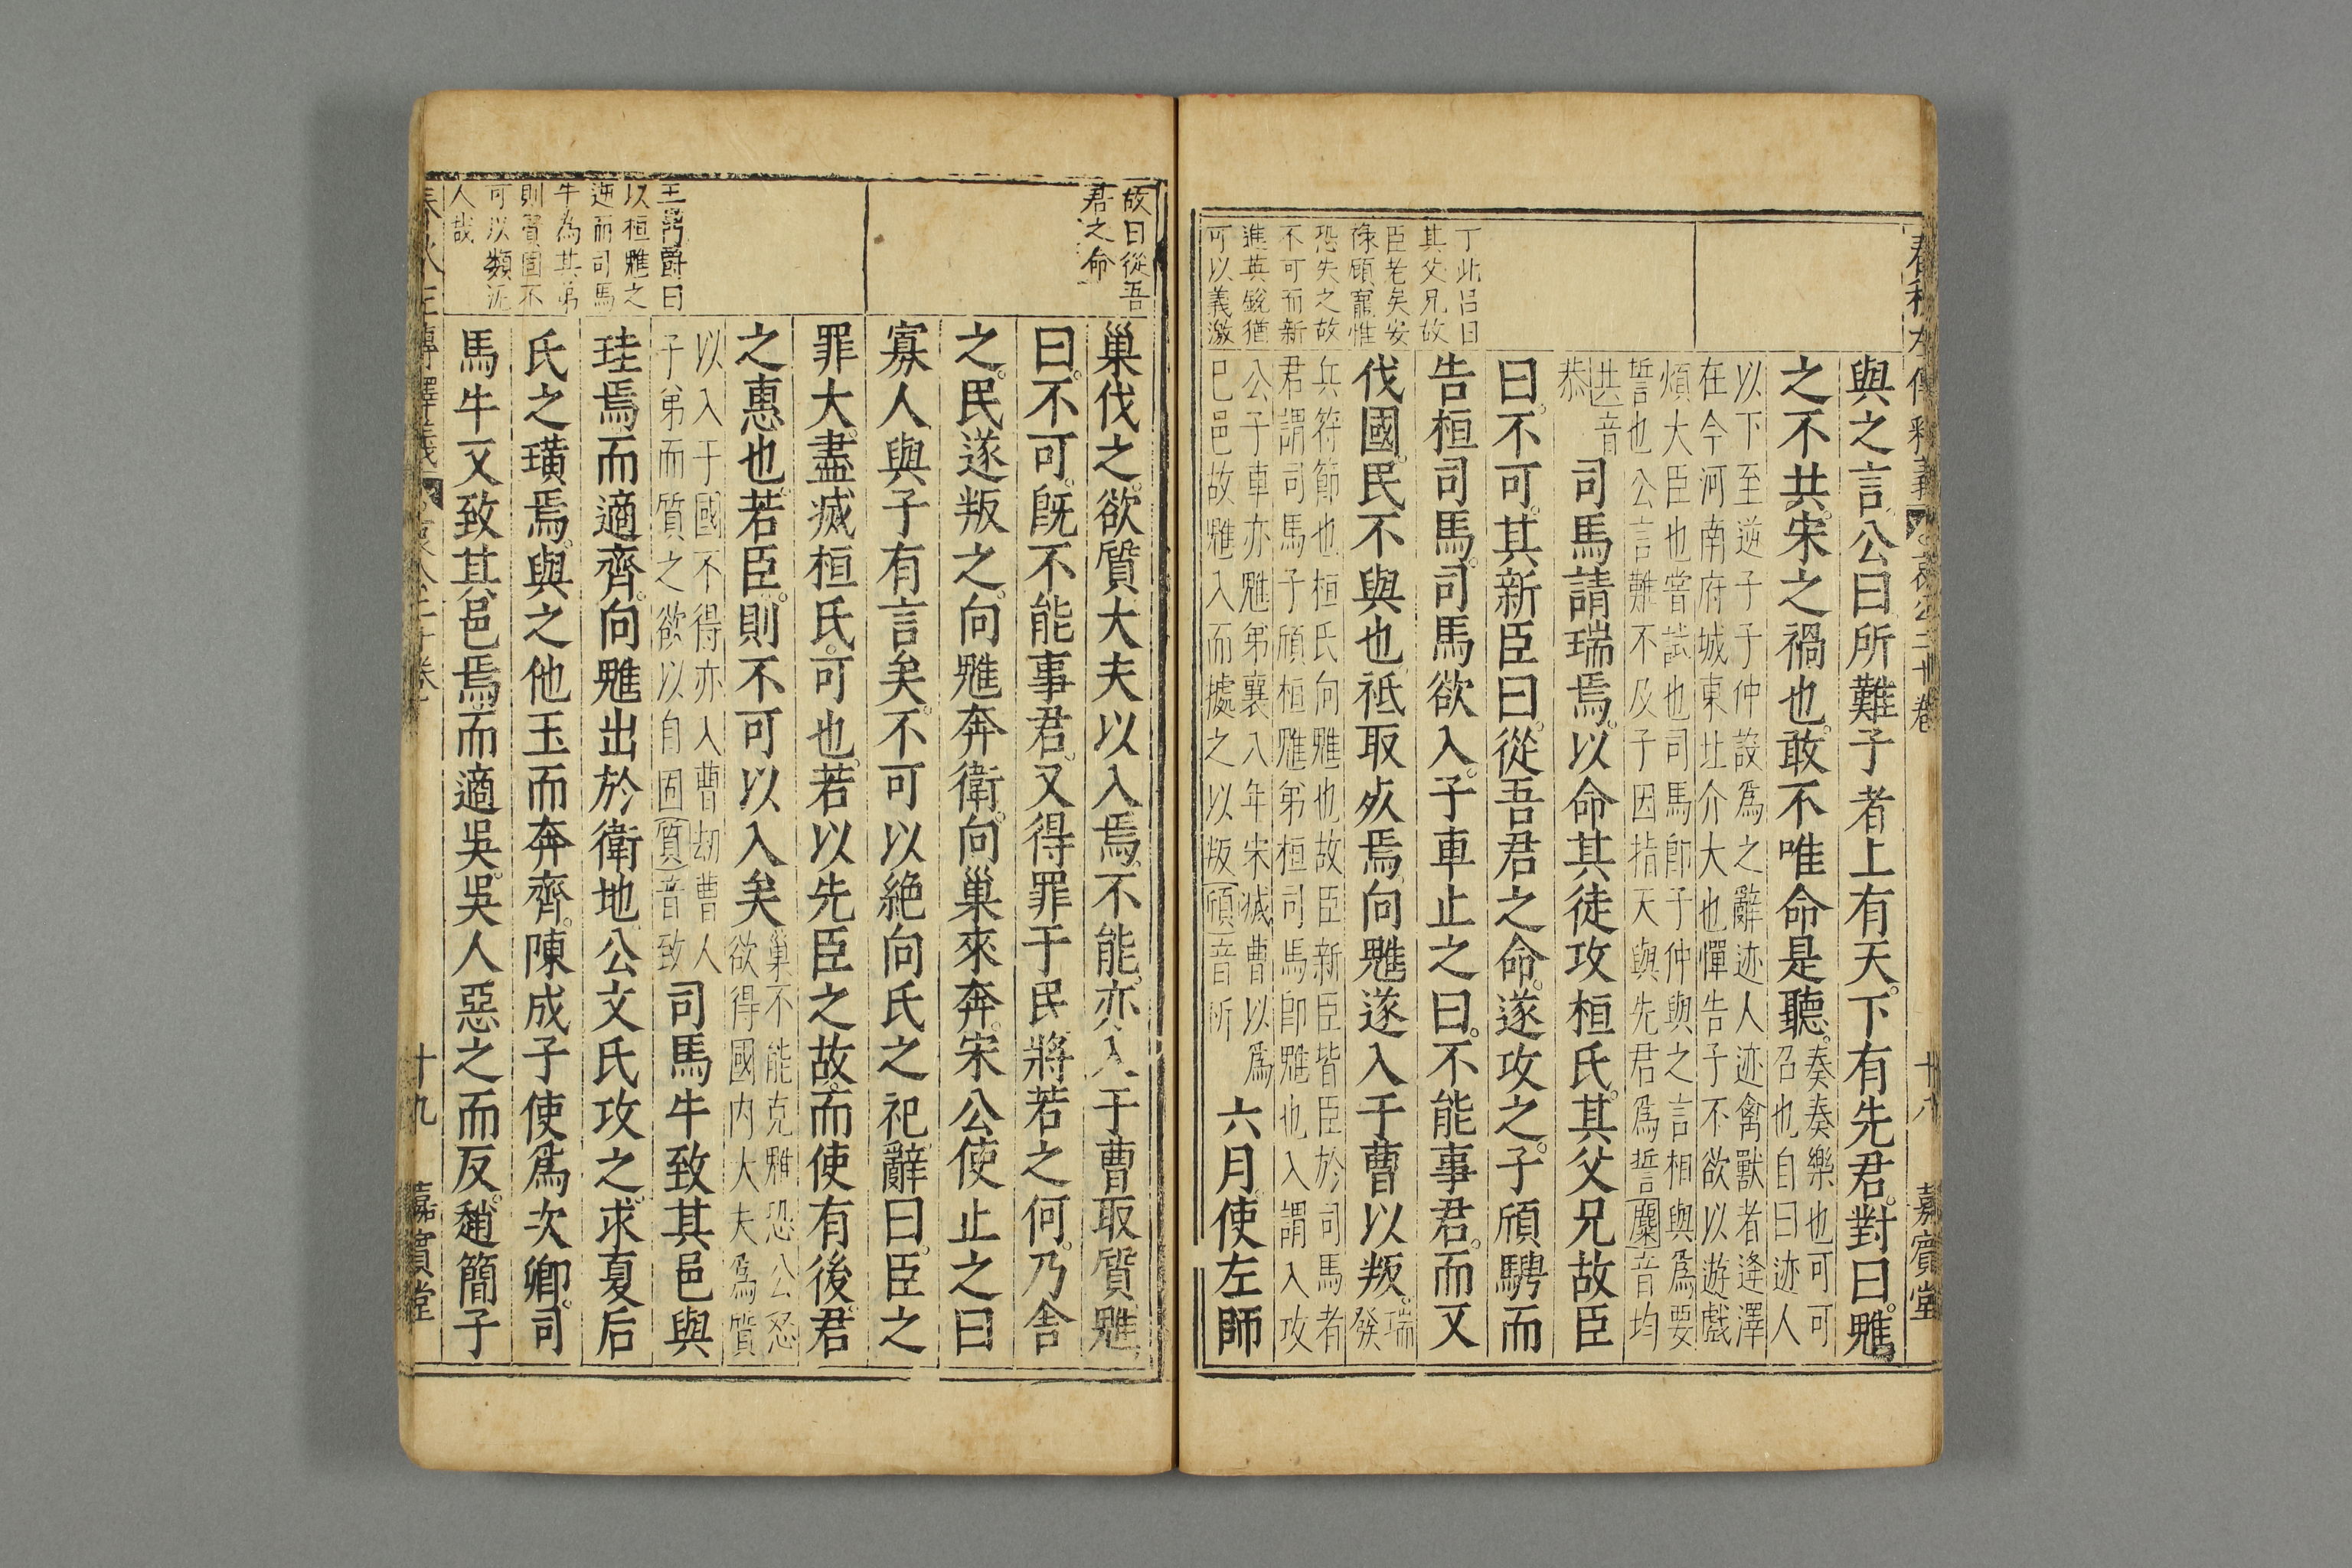 春秋左傳釋義 哀公三十卷 十八 嘉賓堂
丁此呂曰
其父兄故
臣老矣安
祿顧寵惟
恐失之故
不可而新
進英銳猶
可以義激
與之言公曰所難子者上有天。下有先君。對曰。魋
之不共宋之禍也。敢不唯命是聽。奏奏樂也可可
召也自曰迹人
以下至逆子子仲設爲之辭迹人迹禽獸者逢澤
在今河南府城東北介大也憚告子不欲以遊戲
煩大臣也嘗試也司馬卽子仲與之言相與爲要
誓也公言難不及子因指天與先君爲誓麋音均
共音
恭
司馬請瑞焉。以命其徒攻桓氏。其父兄故臣
曰。不可。其新臣曰。從吾君之命。遂攻之。子頎騁而
告桓司馬。司馬欲入。子車止之曰。不能事君。而又
伐國。民不與也。祗取死焉。向魋遂入于曹以叛。瑞
發
兵符節也桓氏向魋也故臣新臣皆臣於司馬者
君謂司馬子頎桓魋弟桓司馬卽魋也入謂入攻
公子車亦魋弟襄八年宋滅曹以爲
己邑故魋入而據之以叛頎音祈
六月。使左師
故曰從吾
君之命
王錫爵曰
以桓魋之
逆而司馬
牛為其弟
則賢固不
可以類泥
人哉
巢伐之。欲質大夫以入焉。不能。亦入于曹取質魋
曰。不可。旣不能事君。又得罪于民將若之何。乃舍
之。民遂叛之。向魋奔衛。向巢來奔。宋公使止之曰
寡人與子有言矣。不可以絶向氏之祀辭曰。臣之
罪大。盡滅桓氏。可也。若以先臣之故。而使有後。君
之惠也。若臣。則不可以入矣
巢不能克魋恐公怒
欲得國内大夫爲質
以入于國不得亦入曹劫曹人
子弟而質之欲以自固質音致
司馬牛致其邑與
珪焉。而適齊。向魋出於衛地。公文氏攻之。求夏后
氏之璜焉。與之他玉而奔齊。陳成子使爲次卿。司
馬牛又致其邑焉。而適吳。吳人惡之而反。趙簡子
春秋左傳釋義 哀公三十卷 十九 嘉賓堂